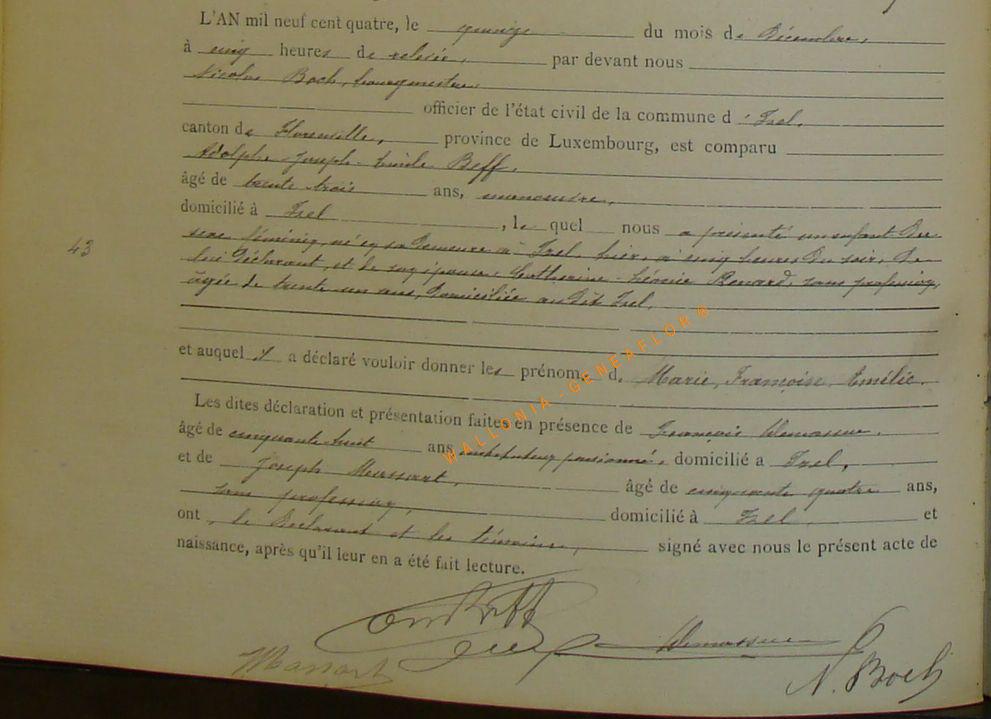 L'AN mil neuf cent quatre, le quinze du mois de Décembre,
à cinq heures de relevée, par devant nous
Nicolas Boch, bourgmestre
officier de l'état civil de la commune d'Izel,
canton de Florenville, province de Luxembourg, est comparu
Adolphe Joseph Emile Beff,
âgé de trente trois ans,
domicilié à Izel, lequel nous a présenté un enfant du
43
sexe féminin, né en sa demeure à Izel, hier, à cinq heures du soir, de
lui déclarant, et de son épouse Catherine Léonie Renard, sans profession,
âgée de trente un ans, domiciliée au dit Izel.
et auquel il a déclaré vouloir donner les prénoms de Marie, Françoise Emélie.
Les dites déclaration et présentation faites en présence de François
âgé de cinquante huit ans, pensionné, domicilié a Izel,
et de Joseph Massart, âgé de cinquante quatre ans,
sans profession, domicilié à Izel et
ont, le déclarant et les témoins, signé avec nous le présent acte de
naissance, après qu'il leur en a été fait lecture.
WALLONIA - GENEAFLOR ®
Massart
N. Boch